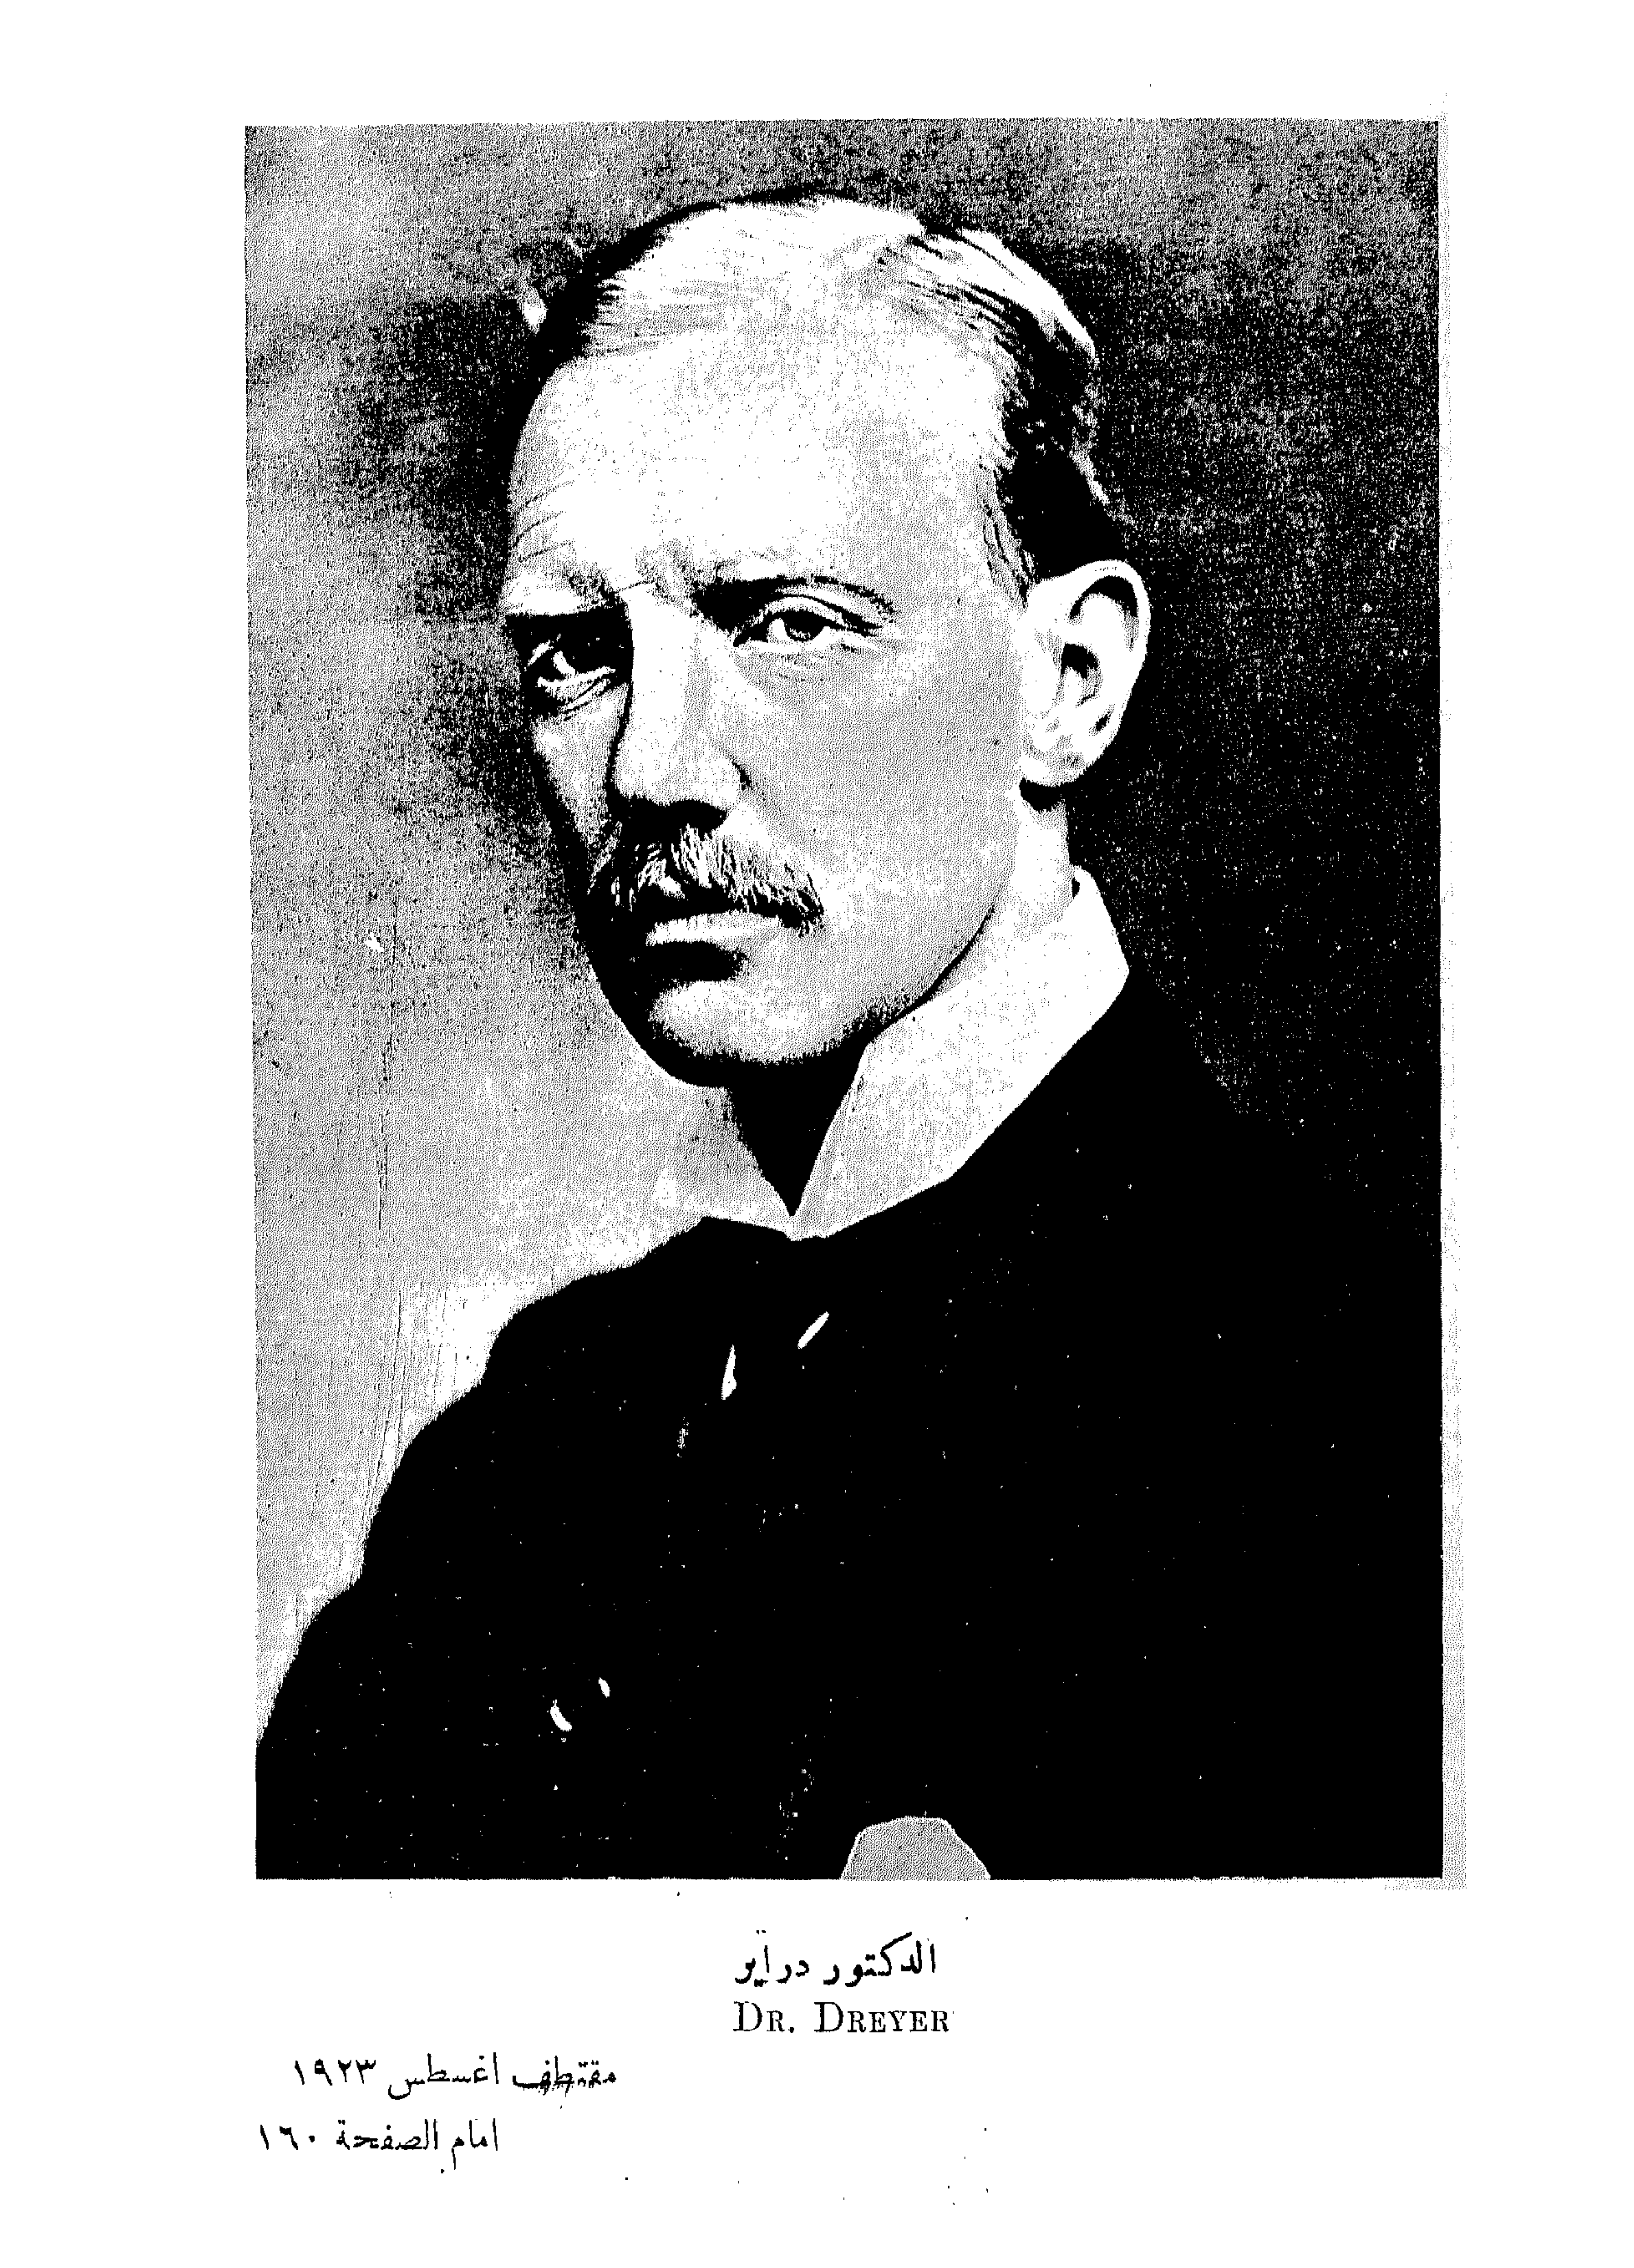 الدكتور دراير
DR. DREYER
مقتطف اغسطس ١٩٢٣
امام الصفحة ١٦٠